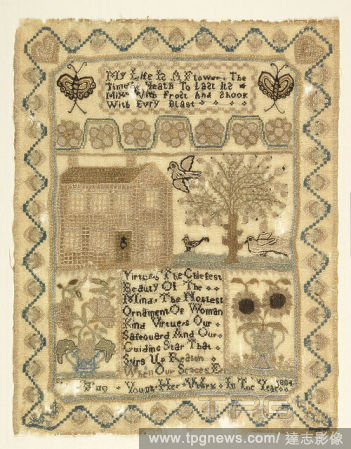 My Life Is A Flower The
Time It Hath To Last Is
Mixt With Frost And Shook
With Evry Blast
Virtues The Chiefest
Beauty Of The
Mind The Noblest
Ornament Of Woman
Kind Virtues Our
Safeguard And Our
Guiding Star That
Stirs Up Reason
When Our Senses Err
Young Her Work In The Year 1804
www.tpgnews.com/ 達志影像